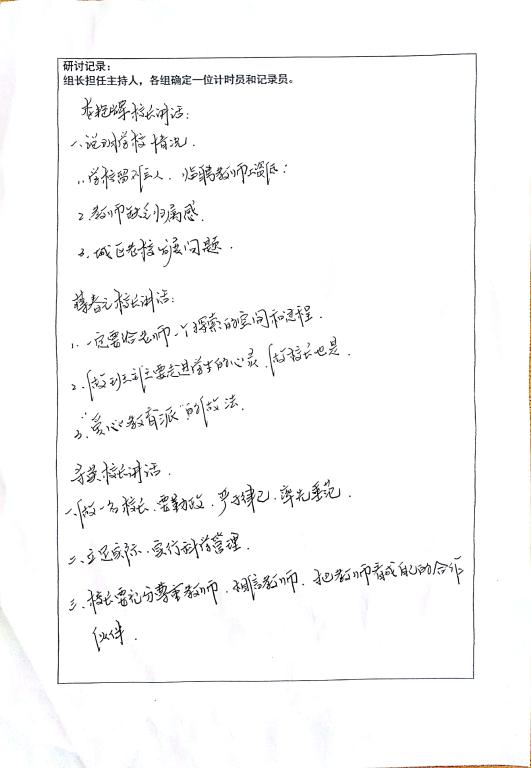 研讨记录：
组长担任主持人，各组确定一位计时员和记录员。
校长讲话：
一、说到学校情况．
1. 学校留不主人．临聘教师工资低：
2. 教师缺乏归属感．
3. 城区老校发展问题．
春元校长讲话：
1. 一定要给老师一个探索的空间和过程．
2. 做班主任主要走进学生的心灵．做校长也是．
3. "爱心教育派"的做法．
校长讲话．
一、做一名校长．要勤政．严于律己．率先垂范．
二、立足实际．实行科学管理．
三、校长要充分尊重教师．相信教师．把教师看成自己的合作
伙伴．